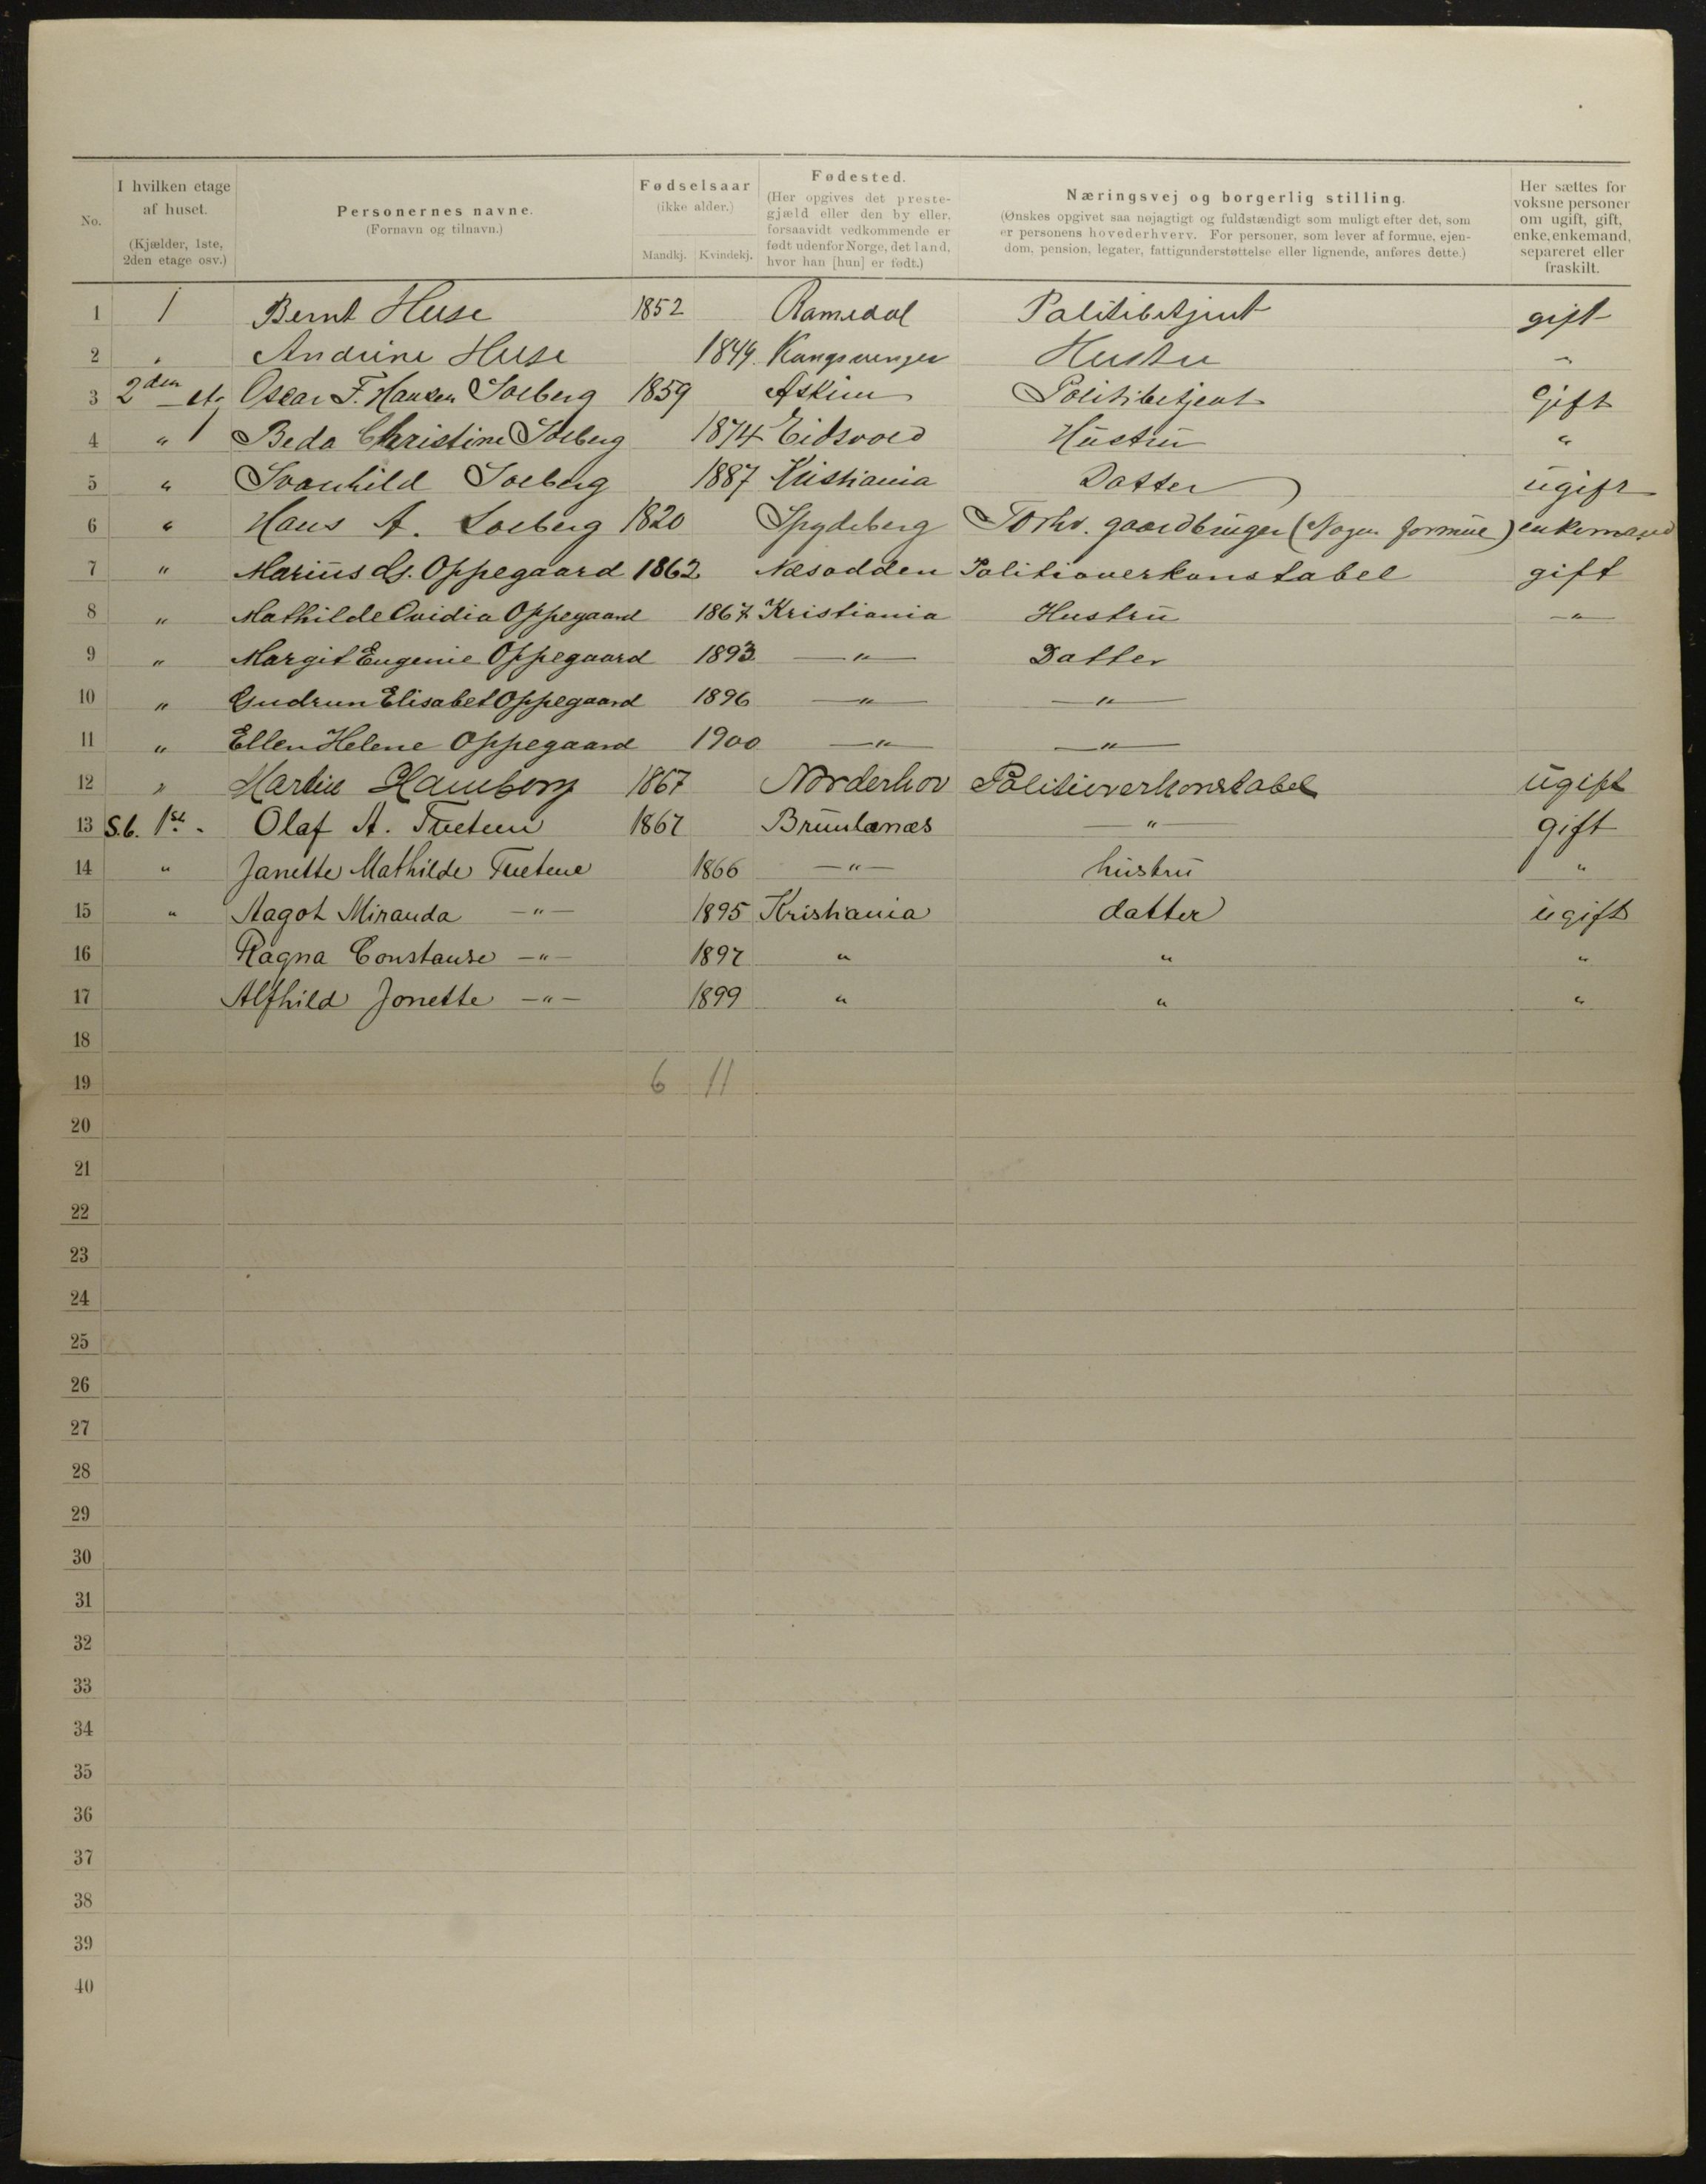 No. | I hvilken etage af huset. (Kjælder, 1ste, 2den etage osv.) | Personernes navne. (Fornavn og tilnavn.) | Fødselsaar (ikke alder.) Mandkj. Kvindekj. | Fødested. (Her opgives det prestegjæld eller den by eller, forsaavidt vedkommende er født udenfor Norge, det land, hvor han [hun] er født.) | Næringsvej og borgerlig stilling. (Ønskes opgivet saa nøjagtigt og fuldstændigt som muligt efter det, som er personens hovederhverv. For personer, som lever af formue, ejendom, pension, legater, fattigunderstøttelse eller lignende, anføres dette.) | Her sættes for voksne personer om ugift, gift, enke, enkemand, separeret eller fraskilt.
1 1 Bernt Huse 1852 Ramsdal Politibetjent gift
2 " Andrine Huse 1849 Kongsvinger Hustru "
3 2den et. Oscar F. Hansen Solberg 1859 Askim Politibetjent Gift
4 " Beda Christine Solberg 1874 Eidsvold Hustru "
5 " Svanhild Solberg 1887 Kristiania Datter ugift
6 " Hans A. Solberg 1820 Spydeberg Forhv. gaardbruger (Nogen formue) enkemand
7 " Marius Ls. Oppegaard 1862 Næsodden Politioverkonstabel gift
8 " Mathilde Ovidia Oppegaard 1867 Kristiania Hustru "
9 " Margit Eugenie Oppegaard 1893 " Datter
10 " Gudrun Elisabet Oppegaard 1896 " "
11 " Ellen Helene Oppegaard 1900 " "
12 " Martin Hamborg 1867 Norderhov Politioverkonstabel ugift
13 S.b. 1st. Olaf A. Tveten 1867 Brunlanæs " gift
14 " Janette Mathilde Tvetene 1866 " hustru "
15 " Aagot Miranda " 1895 Kristiania datter ugift
16 Ragna Constanse " 1897 " " "
17 Alfhild Jonette " 1899 " " "
18
19 6 11
20
21
22
23
24
25
26
27
28
29
30
31
32
33
34
35
36
37
38
39
40